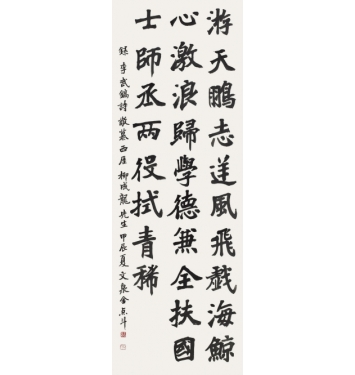 游天鵬志送風飛戲海鯨
心激浪歸學德兼全扶國
士師丞兩役拭青稀
錄李武鎬詩敬慕西厓柳成龍先生甲辰夏文泉金点斗